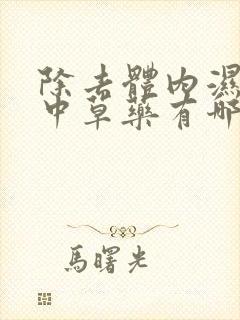 除去體內濕
中草藥有哪
馬曙光